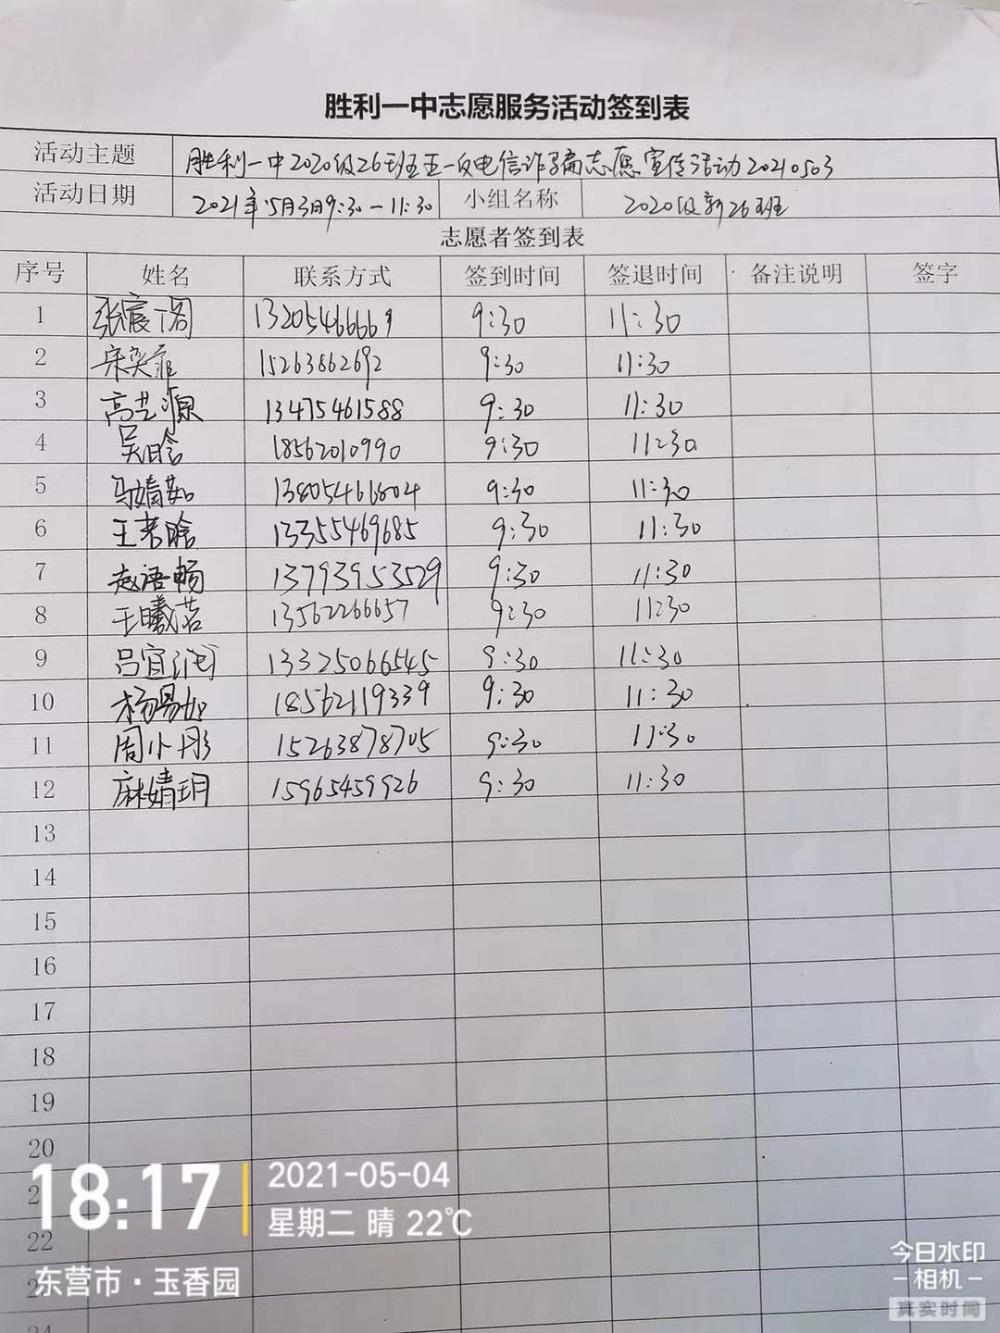 胜利一中志愿服务活动签到表
活动主题 胜利一中2020级26班五一反电信诈骗志愿宣传活动20210503
活动日期 2021年5月3日9:30-11:30 小组名称 2020级新26班
志愿者签到表
序号 姓名 联系方式 签到时间 签退时间 备注说明 签字
1 张宸 13205466669 9:30 11:30
2 宋奕 15263862692 9:30 11:30
3 高艺源 13475461588 9:30 11:30
4 吴晗 18562010990 9:30 11:30
5 马婧茹 13805461804 9:30 11:30
6 王若晗 13355469685 9:30 11:30
7 赵语畅 13793953529 9:30 11:30
8 王曦茗 13562266657 9:30 11:30
9 吕宜润 13325066545 9:30 11:30
10 杨易如 18562119339 9:30 11:30
11 周小彤 15263878705 9:30 11:30
12 麻婧玥 15965459926 9:30 11:30
13
14
15
16
17
18
19
20
22
18:17 2021-05-04
星期二 晴 22℃
东营市·玉香园
今日水印
-相机-
真实时间